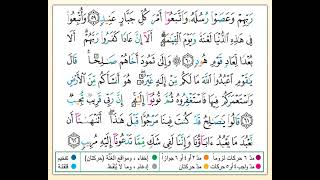 رَبِّهِمْ وَعَصَوْا۟ رُسُلَهُۥ وَٱتَّبَعُوٓا۟ أَمْرَ كُلِّ جَبَّارٍ عَنِيدٍ ٥٩ وَأُتْبِعُوا۟
فِى هَـٰذِهِ ٱلدُّنْيَا لَعْنَةً وَيَوْمَ ٱلْقِيَـٰمَةِ ۗ أَلَآ إِنَّ عَادًا كَفَرُوا۟ رَبَّهُمْ ۗ أَلَا
بُعْدًا لِّعَادٍ قَوْمِ هُودٍ ٦٠ وَإِلَىٰ ثَمُودَ أَخَاهُمْ صَـٰلِحًا ۚ قَالَ
يَـٰقَوْمِ ٱعْبُدُوا۟ ٱللَّهَ مَا لَكُم مِّنْ إِلَـٰهٍ غَيْرُهُۥ ۖ هُوَ أَنشَأَكُم مِّنَ ٱلْأَرْضِ
وَٱسْتَعْمَرَكُمْ فِيهَا فَٱسْتَغْفِرُوهُ ثُمَّ تُوبُوٓا۟ إِلَيْهِ ۚ إِنَّ رَبِّى قَرِيبٌ مُّجِيبٌ ٦١
قَالُوا۟ يَـٰصَـٰلِحُ قَدْ كُنتَ فِينَا مَرْجُوًّا قَبْلَ هَـٰذَآ ۖ أَتَنْهَىٰنَآ أَن
نَّعْبُدَ مَا يَعْبُدُ ءَابَآؤُنَا وَإِنَّنَا لَفِى شَكٍّ مِّمَّا تَدْعُونَآ إِلَيْهِ مُرِيبٍ ٦٢
مدّ ٦ حركات لزوماً مدّ ٢ أو ٤ أو ٦ جوازاً إخفاء، ومواقع الغنّة (حركتان) تفخيم
مدّ واجب ٤ أو ٥ حركات مدّ حركتان إدغام، وما لا يُلفظ قلقلة